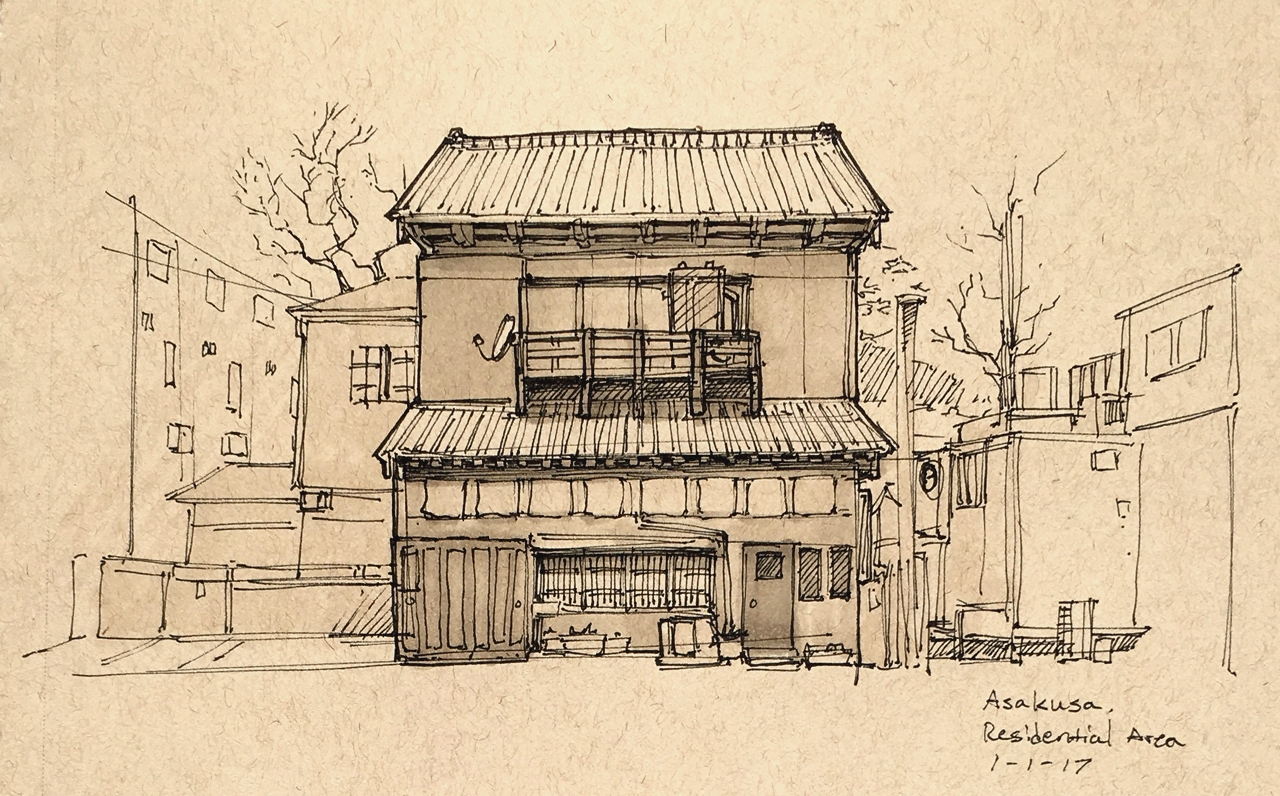 Asakusa,
Residential Area
1-1-17